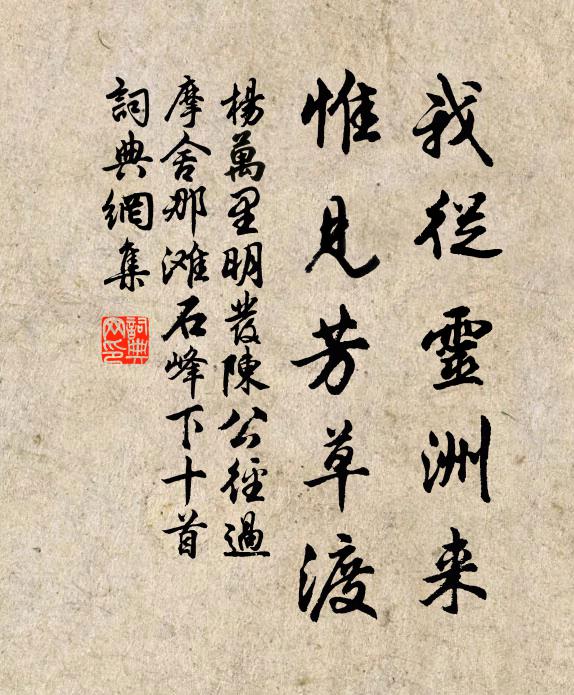 我從靈洲来
惟見芳草渡
楊萬里明發陳公徑過
摩舍那滩石峰下十首
詞典網集
詞典
网印